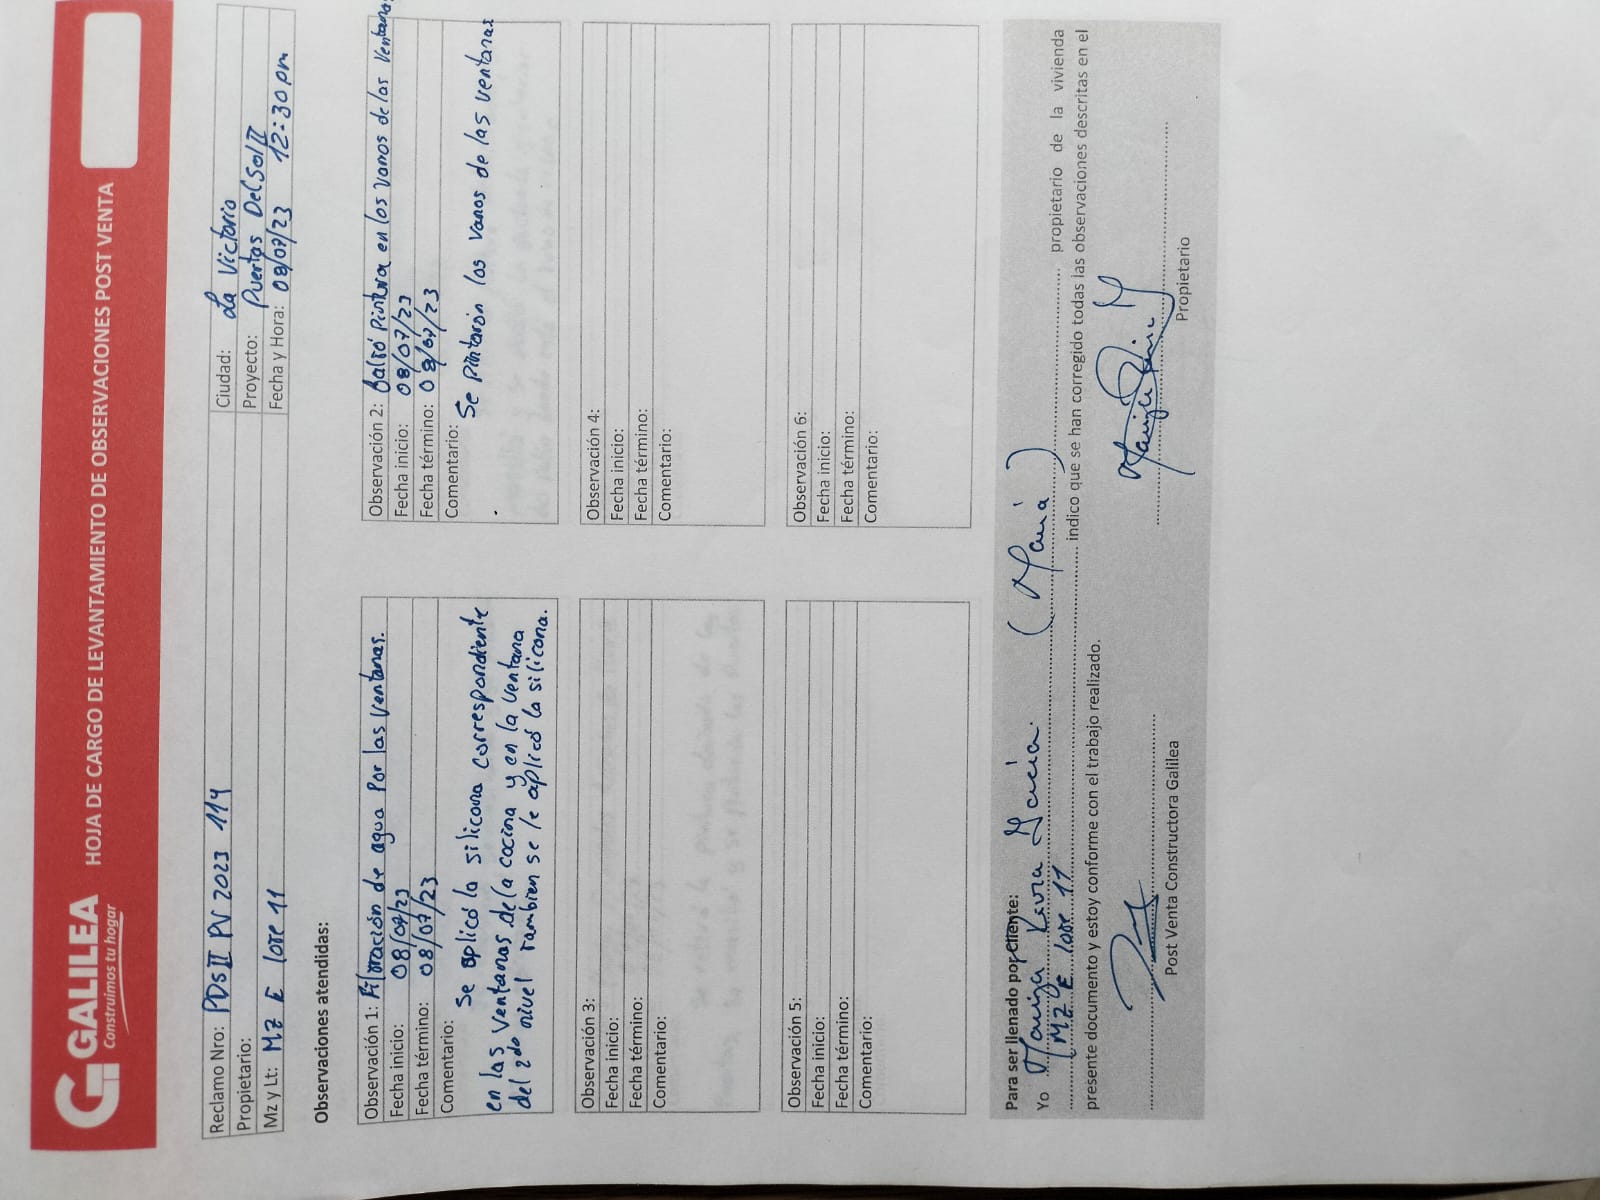 GALILEA
Construimos tu hogar
HOJA DE CARGO DE LEVANTAMIENTO DE OBSERVACIONES POST VENTA
Reclamo Nro: PDSII PV 2023 114
Ciudad: La Victoria
Propietario:
Proyecto: Puertas Del Sol II
Mz y Lt: Mz E lote 11
Fecha y Hora: 08/07/23 12:30 pm
Observaciones atendidas:
Observación 1: Filtración de agua Por las ventanas.
Fecha inicio: 08/07/23
Fecha término: 08/07/23
Comentario:
Se aplicó la silicona correspondiente
en las ventanas de la cocina y en la ventana
del 2do nivel tambien se le aplicó la silicona.
Observación 2: Faltó Pintura en los vanos de las ventanas
Fecha inicio: 08/07/23
Fecha término: 08/07/23
Comentario:
Se Pintarón los vanos de las ventanas
Observación 3:
Fecha inicio:
Fecha término:
Comentario:
Observación 4:
Fecha inicio:
Fecha término:
Comentario:
Observación 5:
Fecha inicio:
Fecha término:
Comentario:
Observación 6:
Fecha inicio:
Fecha término:
Comentario:
Para ser llenado por Cliente:
Yo García. propietario de la vivienda
Mz E lote 11 indico que se han corregido todas las observaciones descritas en el
presente documento y estoy conforme con el trabajo realizado.
Post Venta Constructora Galilea
Propietario